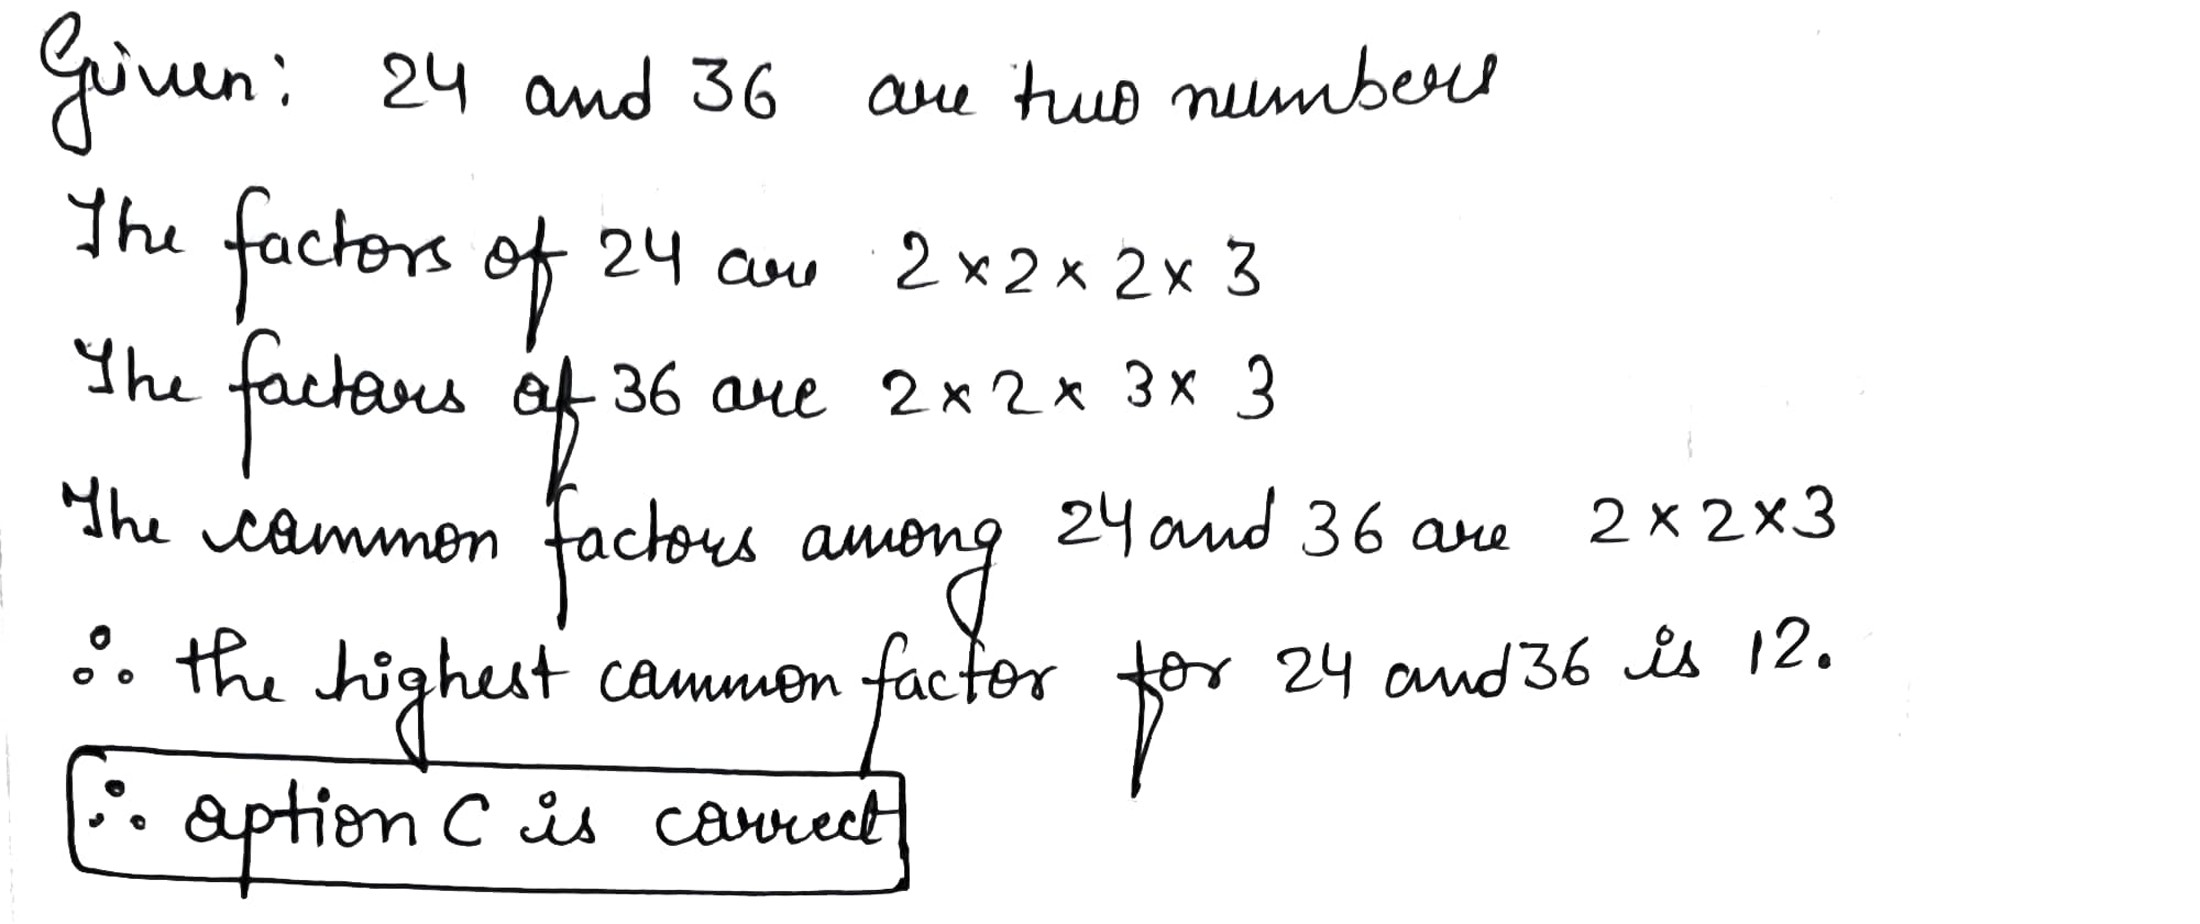 Given: 24 and 36 are two numbers
The factors of 24 are 2×2×2×3
The factors of 36 are 2×2×3×3
The common factors among 24 and 36 are 2×2×3
∴ the highest common factor for 24 and 36 is 12.
∴ option C is correct